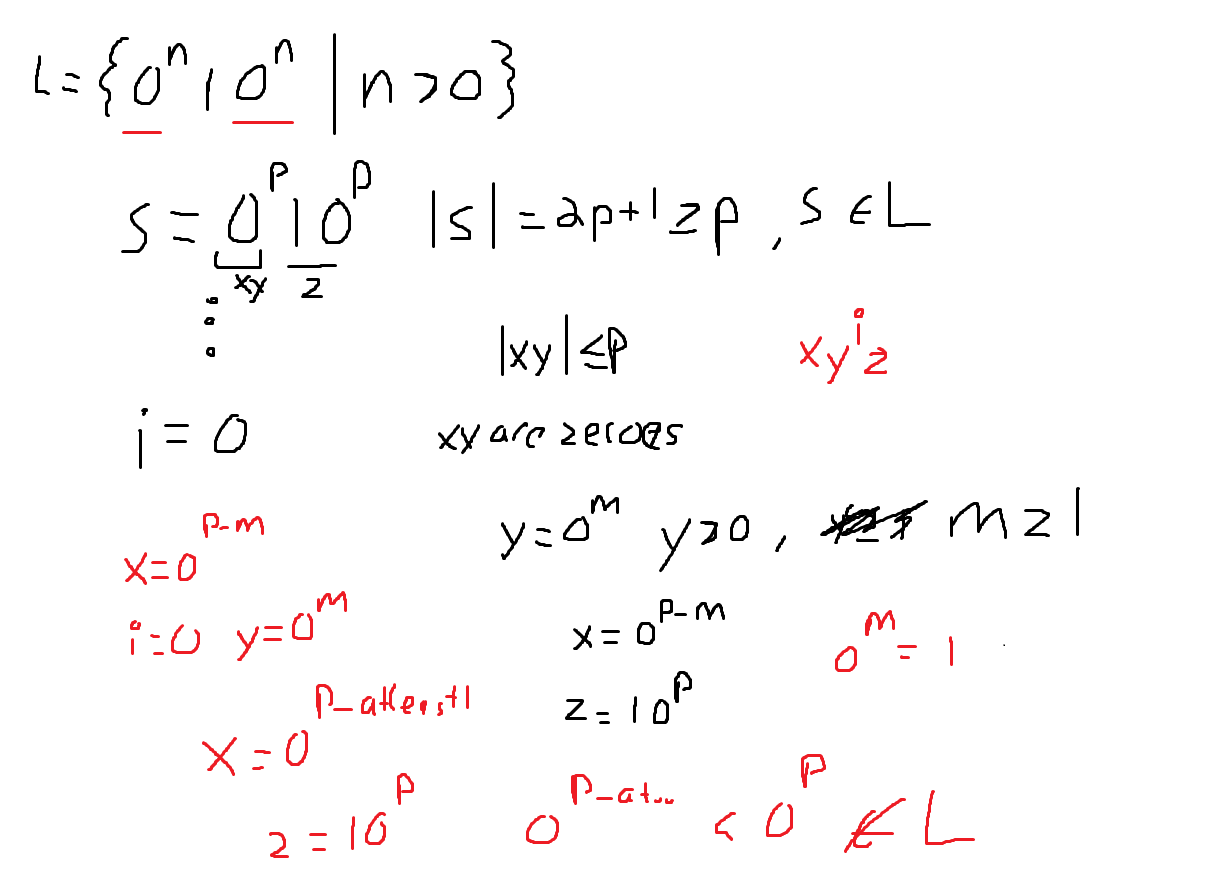 L={0ⁿ10ⁿ|n>0}
S=0ᵖ10ᵖ |S|=2p+1≥p, S∈L
xy z
|xy|≤p xyⁱz
i=0 xy are zeroes
x=0ᵖ⁻ᵐ y=0ᵐ y>0, m≥1
i=0 y=0ᵐ x=0ᵖ⁻ᵐ 0ᵐ=1
z=10ᵖ
x=0^(p-atleast1)
z=10ᵖ 0^(p-at...) < 0ᵖ ∉L